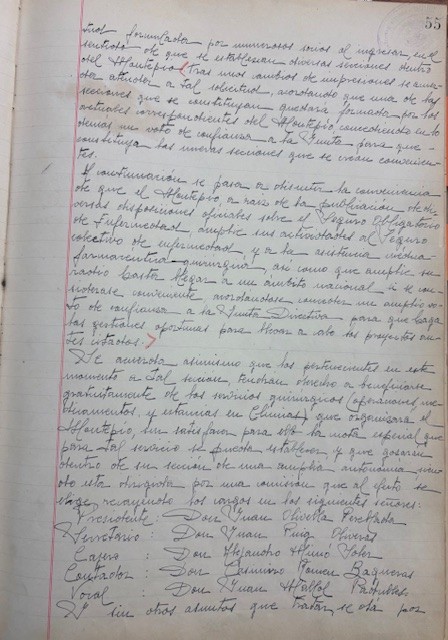 55
formuladas por numerosos socios al ingresar, en el
sentido de que se establezcan diversas secciones dentro
del Montepío (Tras unos cambios de impresiones se
atender a tal solicitud, acordando que una de las
secciones que se constituyan quedará formada por los
actuales correspondientes del Montepío, concediendo
un voto de confianza a la Junta para que
constituya las nuevas secciones que se crean convenien-
tes.
A continuación se pasa a discutir la conveniencia
de que el Montepío, a raíz de la publicación de di-
versas disposiciones oficiales sobre el Seguro Obligatorio
de Enfermedad, amplíe sus actividades al Seguro
colectivo de enfermedad, y a la asistencia médica
farmacéutica-quirúrgica, así como que amplíe su
radio hasta llegar a un ámbito nacional si se con-
siderase conveniente, acordándose conceder un amplio vo-
to de confianza a la Junta Directiva para que haga
las gestiones oportunas para llevar a cabo los proyectos an-
tes citados.)
Se acuerda asimismo que los pertenecientes en este
momento a tal sección, tendrán derecho a beneficiarse
gratuitamente de los servicios quirúrgicos (operaciones, me-
dicamentos, y estancias en Clínicas) que organizará el
Montepío, sin satisfacer para ello la cuota especial que
para tal servicio se pueda establecer, y que gozarán
dentro de su sección de una amplia autonomía, sien-
do esta dirigida por una comisión que al efecto se
elige, recayendo los cargos en los siguientes señores:
Presidente: Don Juan Olivella
Secretario: Don Juan Puig Oliveras
Cajero: Don Alejandro Soler
Contador: Don Casimiro Baqueras
Vocal: Don Juan
Y sin otros asuntos que tratar, se da por